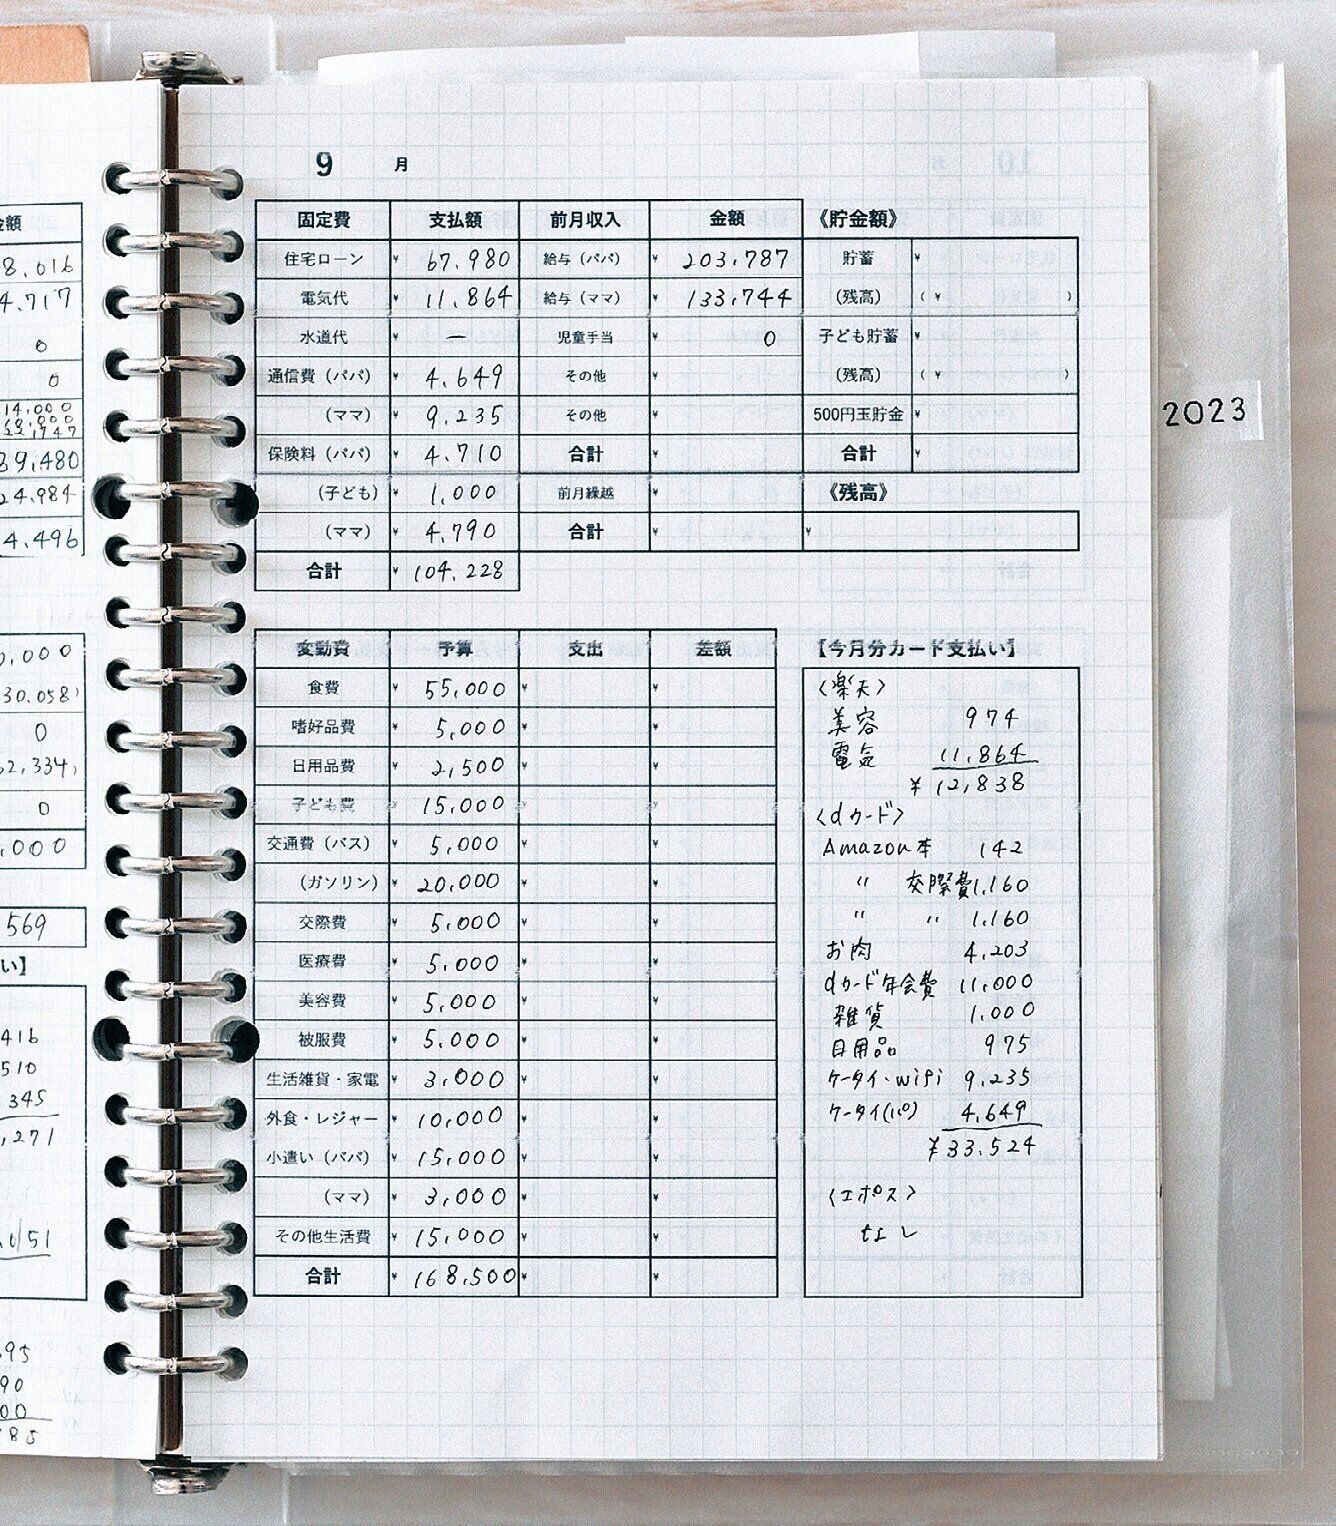 金額
8,016
4,717
0
0
14,000
89,480
24,984
4,496
0,000
30,058)
0
62,334)
0
,000
569
い】
416
510
345
,271
,051
95
90
00
85
9 月
固定費 支払額 前月収入 金額 《貯金額》
住宅ローン ¥ 67,980 給与（パパ） ¥ 203,787 貯蓄 ¥
電気代 ¥ 11,864 給与（ママ） ¥ 133,744 (残高) ( ¥ )
水道代 ¥ ー 児童手当 ¥ 0 子ども貯蓄 ¥
通信費（パパ） ¥ 4,649 その他 ¥ (残高) ( ¥ )
（ママ） ¥ 9,235 その他 ¥ 500円玉貯金 ¥
保険料（パパ） ¥ 4,710 合計 ¥ 合計 ¥
（子ども） ¥ 1,000 前月繰越 ¥ 《残高》
（ママ） ¥ 4,790 合計 ¥ ¥
合計 ¥ 104,228
2023
変動費 予算 支出 差額
食費 ¥ 55,000 ¥ ¥
嗜好品費 ¥ 5,000 ¥ ¥
日用品費 ¥ 2,500 ¥ ¥
子ども費 ¥ 15,000 ¥ ¥
交通費（バス） ¥ 5,000 ¥ ¥
（ガソリン） ¥ 20,000 ¥ ¥
交際費 ¥ 5,000 ¥ ¥
医療費 ¥ 5,000 ¥ ¥
美容費 ¥ 5,000 ¥ ¥
被服費 ¥ 5,000 ¥ ¥
生活雑貨・家電 ¥ 3,000 ¥ ¥
外食・レジャー ¥ 10,000 ¥ ¥
小遣い（パパ） ¥ 15,000 ¥ ¥
（ママ） ¥ 3,000 ¥ ¥
その他生活費 ¥ 15,000 ¥ ¥
合計 ¥ 168,500 ¥ ¥
【今月分カード支払い】
〈楽天〉
美容 974
電気 11,864
¥ 12,838
〈dカード〉
Amazon本 142
〃 交際費 1,160
〃 〃 1,160
お肉 4,203
dカード年会費 11,000
雑貨 1,000
日用品 975
ケータイ・wifi 9,235
ケータイ(パパ) 4,649
¥33,524
〈エポス〉
なし